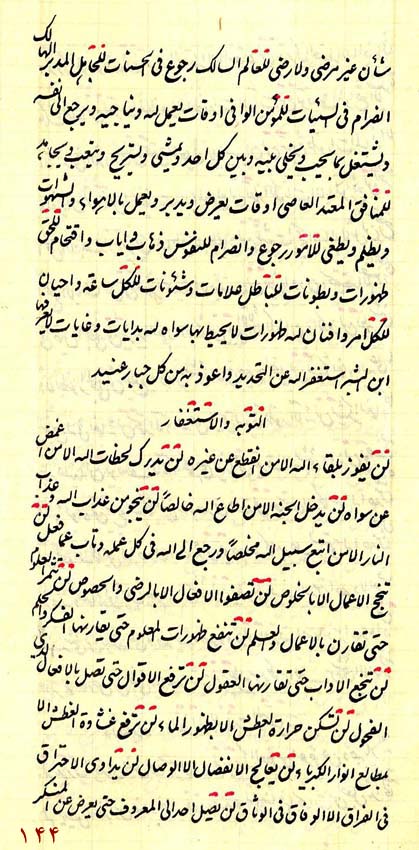 شأن غير مرضى ولا رضى للعالم السالك رجوع فى الحسنات للجاهل المدبر الهالك
انضرام فى السيئات للمؤمن الوافى اوقات يعمل لله ويناجيه ويرجع الى نفسه
ويشتغل بما يحب ويخلى بينه وبين كل احد ويمشى ويستريح ويتعب ويجاهد
للمنافق المعتد العاصى اوقات يعرض ويدبر ويعمل بالاهواء والشهوات
ويظلم ويطغى للامور رجوع وانصرام للنفوس ذهاب واياب واقتحام للحق
ظهورات وبطونات للباطل علامات وشئونات للكل ساعة واحيان
للكل امر وافنان لله ظهورات لا يحيط بها سواه لله بدايات وغايات لا يعرفها
ابن التشبه استغفر الله عن التحديد واعوذ به من كل جبار عنيد
التوبه والاستغفار
لن يفوز بلقاء الله الا من انقطع عن غيره لن يدرك لحظات الله الا من اغمض
عن سواه لن يدخل الجنه الا من اطاع الله خالصاً لن ينجو من عذاب الله وعذاب
النار الا من اتبع سبيل الله مخلصاً ورجع الى الله فى كل عمله وتاب عما فعل لن
تنجح الاعمال الا بالخلوص لن تصفوا الافعال الا بالرضى والخصوص لن تثمر العلوم
حتى تقارن بالاعمال والعلم لن تنفع ظهورات المعلوم حتى يقارنها الفكر والحلم
لن تنجع الاداب حتى تقارنها العقول لن ترفع الاقوال حتى تصل بالافعال لدى
الفحول لن تسكن حرارة العطش الا بظهور الماء لن ترفع غشاوة الغطش الا
بمطالع انوار الكبرياء لن يعالج الانفصال الا الوصال لن يداوى الاحتراق
فى الفراق الا الوفاق فى الوثاق لن تصل احد الى المعروف حتى يعرض عن المنكر
١٤٤